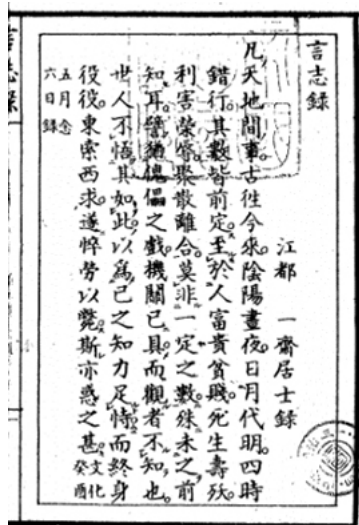 言志錄
江都 一齋居士錄
凡天地間事古徃今來陰陽晝夜日月代明四時
錯行其數皆前定至於人富貴貧賤死生壽殀
利害榮辱聚散離合莫非一定之數殊未之前
知耳譬猶傀儡之戲機關已具而觀者不知也
世人不悟其如此以爲己之知力足恃而終身
役役東索西求遂悴勞以斃斯亦惑之甚 文化癸酉
五月念六日錄
言志錄